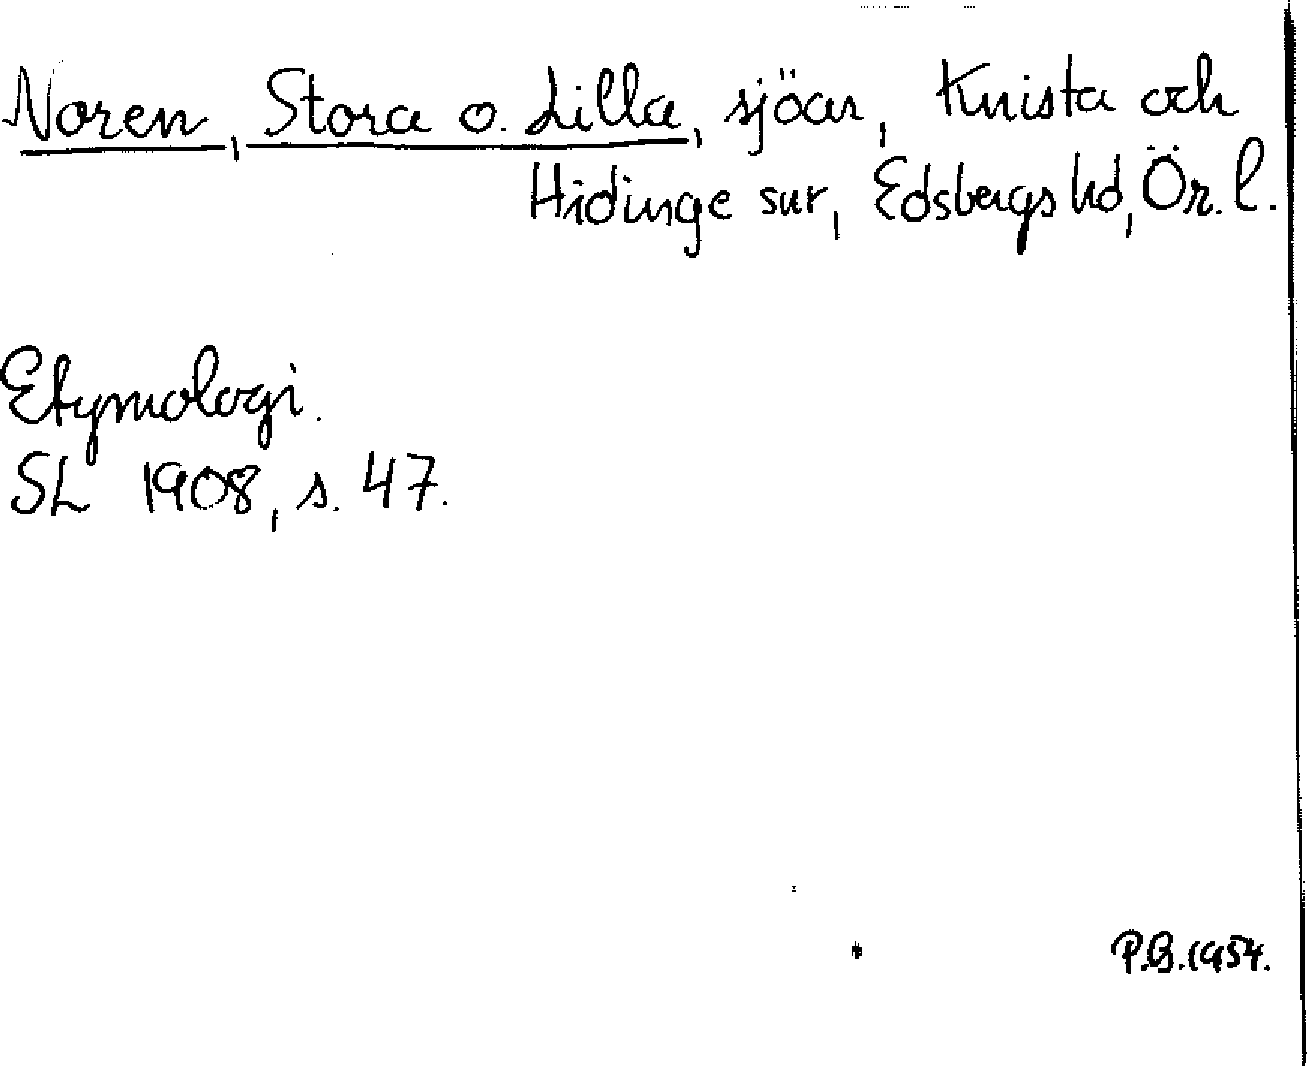 Noren, Stora o. Lilla, sjöar, Knista och
Hidinge snr, Edsbergs hd, Ör. l.
Etymologi.
SL 1908, s. 47.
P.B. 1954.